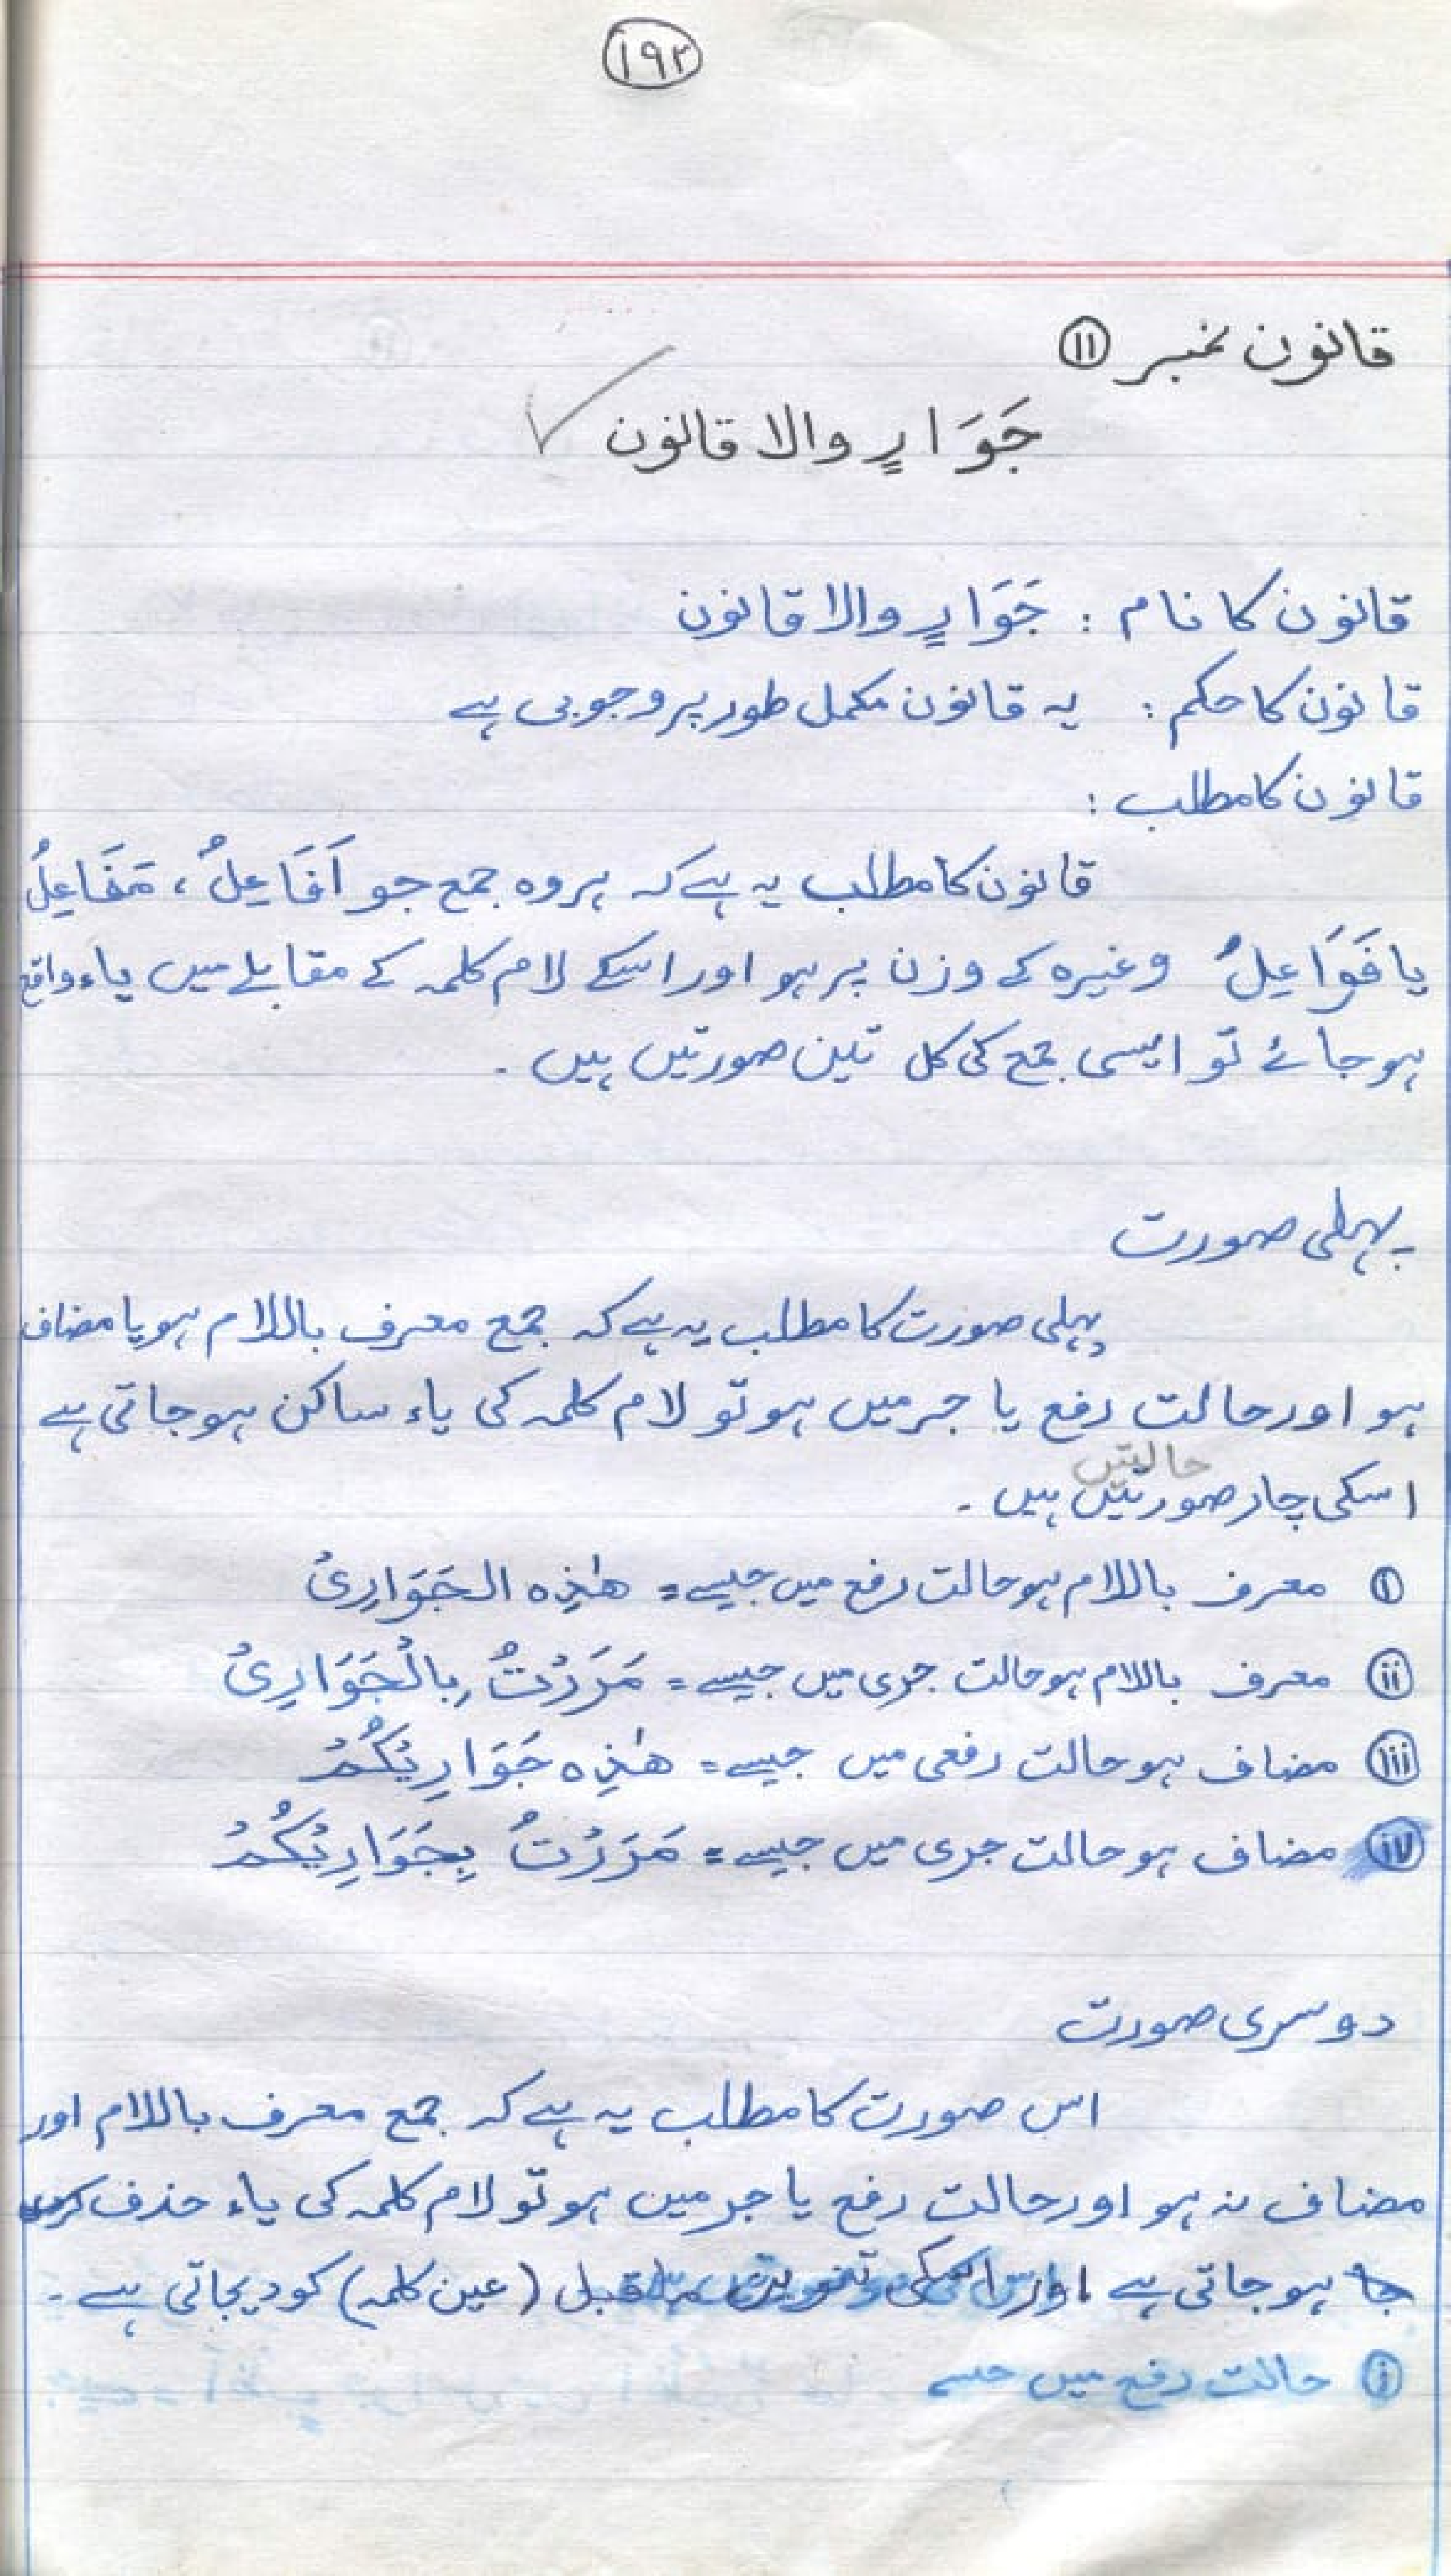 ۱۹۲
قانون نمبر ۱۱
جَوَارٍ والا قانون
قانون کا نام : جَوَارٍ والا قانون
قانون کا حکم : یہ قانون مکمل طور پر وجوبی ہے
قانون کا مطلب :
قانون کا مطلب یہ ہے کہ ہر وہ جمع جو اَفَاعِلُ ، مَفَاعِلُ
یا فَوَاعِلُ وغیرہ کے وزن پر ہو اور اسکے لام کلمہ کے مقابلے میں یاء واقع
ہو جائے تو ایسی جمع کی کل تین صورتیں ہیں ۔
پہلی صورت
پہلی صورت کا مطلب یہ ہے کہ جمع معرف باللام ہو یا مضاف
ہو اور حالت رفع یا جر میں ہو تو لام کلمہ کی یاء ساکن ہو جاتی ہے
حالتیں
اسکی چار صورتیں ہیں ۔
i معرف باللام ہو حالت رفع میں جیسے = هٰذِه الجَوَارِیْ
ii معرف باللام ہو حالت جری میں جیسے = مَرَرْتُ بِالْجَوَارِیْ
iii مضاف ہو حالت رفعی میں جیسے = هٰذِه جَوَارِیْكُمْ
iv مضاف ہو حالت جری میں جیسے = مَرَرْتُ بِجَوَارِیْكُمْ
دوسری صورت
اس صورت کا مطلب یہ ہے کہ جمع معرف باللام اور
مضاف نہ ہو اور حالت رفع یا جر میں ہو تو لام کلمہ کی یاء حذف
جا ہو جاتی ہے اور اسکی تنوین ماقبل (عین کلمہ) کو دیجاتی ہے ۔
i حالت رفع میں جیسے